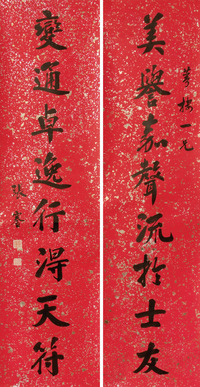 美譽嘉聲流於士友
變通卓逸行得天符
張謇